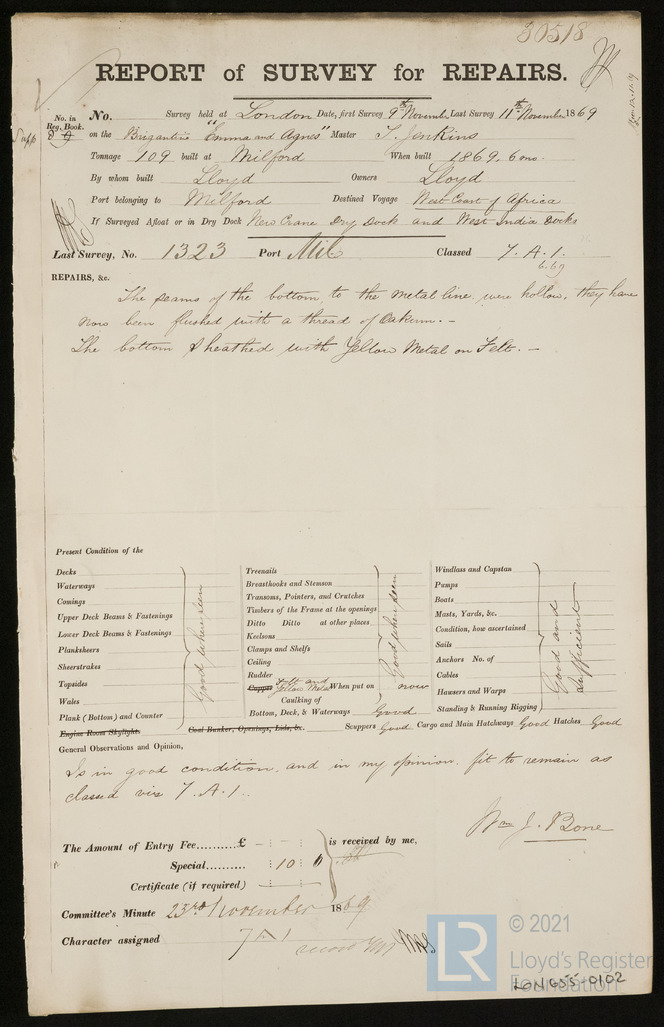 30518
REPORT of SURVEY for REPAIRS.
No. in Reg. Book.
Supp
No. Survey held at London Date, first Survey 9th November Last Survey 11th November 1869
on the Brigantine "Emma and Agnes" Master T. Jenkins
Tonnage 109 built at Milford When built 1869. 6 mo.
By whom built Lloyd Owners Lloyd
Port belonging to Milford Destined Voyage West Coast of Africa
If Surveyed Afloat or in Dry Dock New Crane Dry Dock and West India Docks
Last Survey, No. 1323 Port Mil. Classed 7. A. 1.
6.69
REPAIRS, &c.
The seams of the bottom, to the metal line were hollow, they have
now been flushed with a thread of Oakum. -
The bottom Sheathed with Yellow Metal on Felt. -
Present Condition of the
Decks
Waterways
Comings
Upper Deck Beams & Fastenings
Lower Deck Beams & Fastenings
Planksheers
Sheerstrakes
Topsides
Wales
Plank (Bottom) and Counter
Engine Room Skylight.
Good where seen
Treenails
Breasthooks and Stemson
Transoms, Pointers, and Crutches
Timbers of the Frame at the openings
Ditto Ditto at other places
Keelsons
Clamps and Shelfs
Ceiling
Rudder
Copper Felt and Yellow Metal When put on now
Caulking of
Bottom, Deck, & Waterways Good
Good where seen
Coal Bunker, Openings, Lids, &c.
Windlass and Capstan
Pumps
Boats
Masts, Yards, &c.
Condition, how ascertained
Sails
Anchors No. of
Cables
Hawsers and Warps
Standing & Running Rigging
Good and sufficient
Scuppers Good Cargo and Main Hatchways Good Hatches Good
General Observations and Opinion,
Is in good condition, and in my opinion fit to remain as
classed viz 7. A. 1.
Wm J. Bone
The Amount of Entry Fee..........£ - : - : is received by me,
Special.......... : 10 : 0
Certificate (if required)
Committee's Minute 23rd November 1869
Character assigned 7 A 1
© 2021
LR
Lloyd's Register
Foundation
LON655-0102